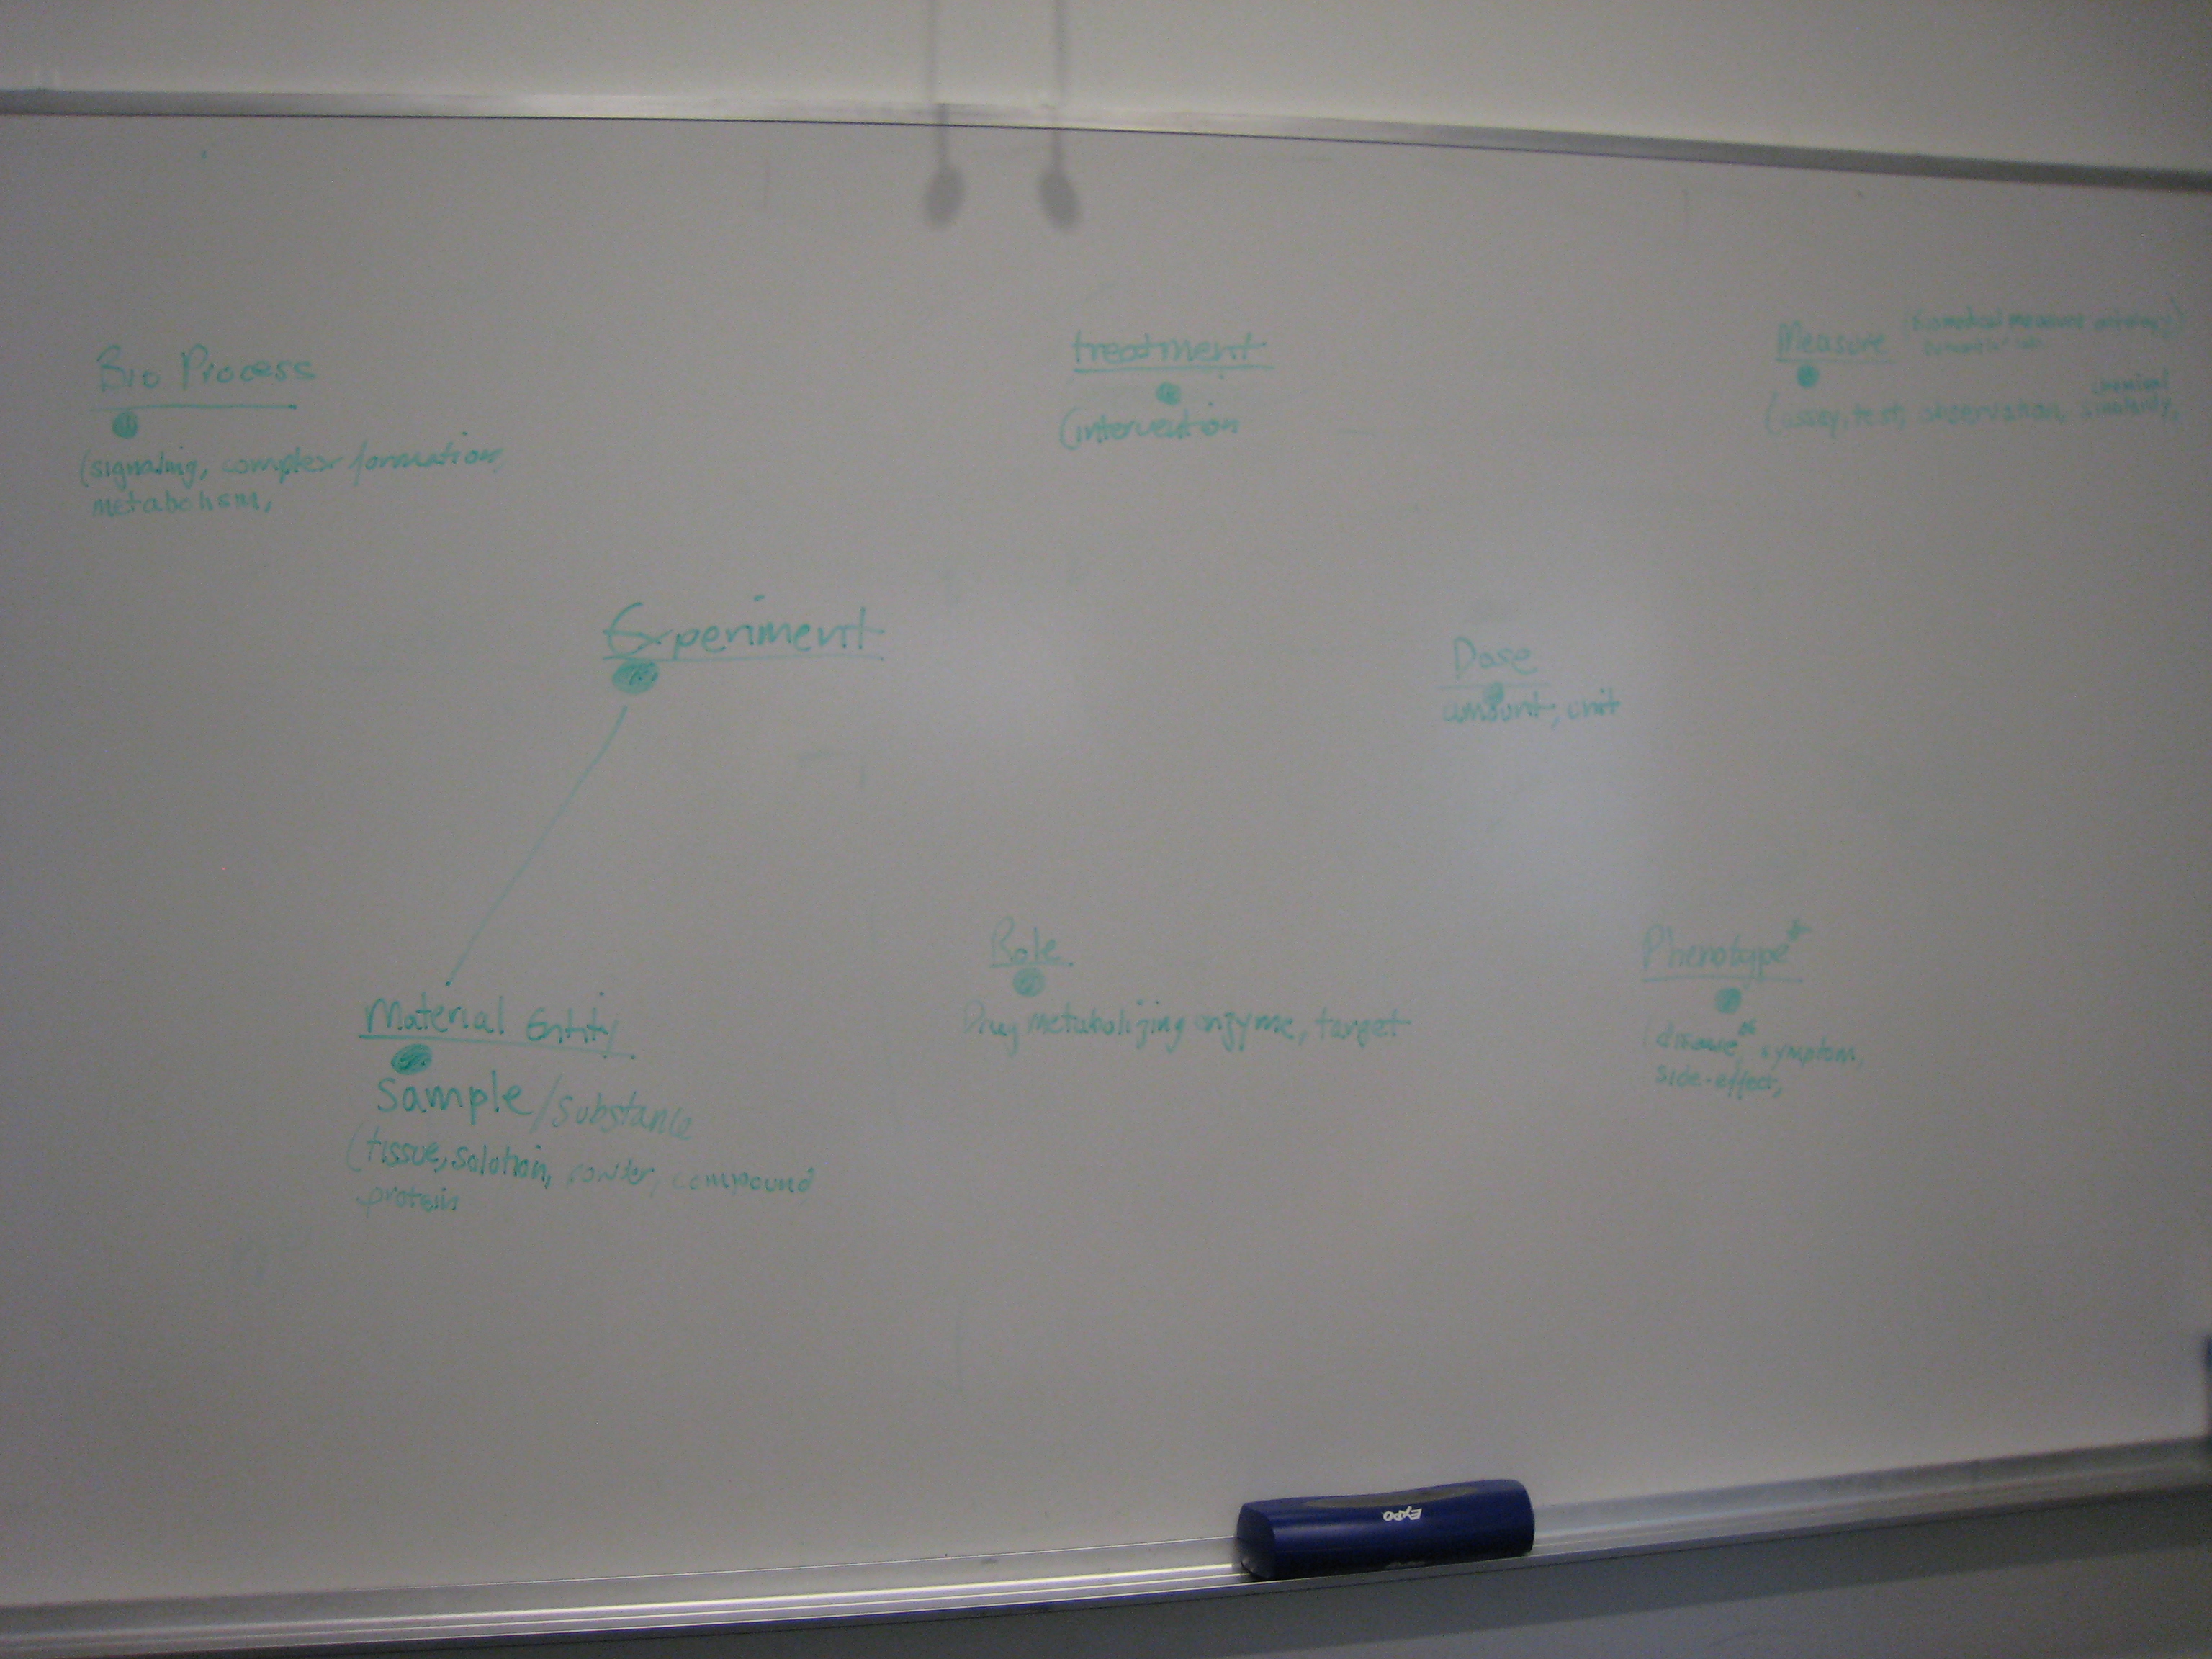 Bio Process
(signaling, complex formation,
metabolism,
treatment
(intervention
Measure (biomedical measures ontology)
chemical
(assay, test, observation, similarity,
Experiment
Dose
amount, unit
Material Entity
Sample/Substance
(tissue, solution, powder, compound
protein
Role
Drug metabolizing enzyme, target
Phenotype*
(disease*, symptom,
side-effect,
EXPO